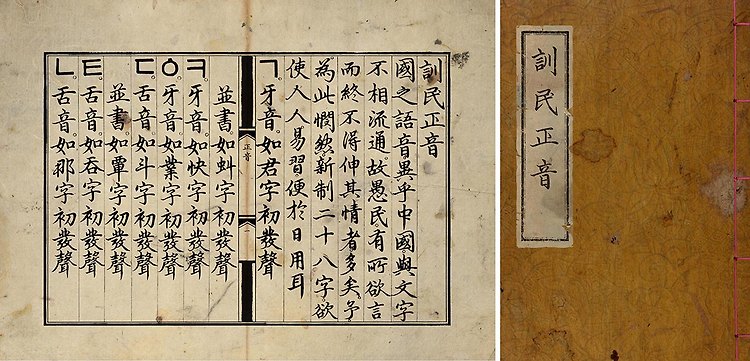 訓民正音
國之語音異乎中國與文字
不相流通。故愚民有所欲言
而終不得伸其情者多矣。予
為此憫然新制二十八字欲
使人人易習便於日用耳
ㄱ牙音。如君字初發聲
正音
並書如虯字初發聲
ㅋ牙音。如快字初發聲
ㆁ牙音。如業字初發聲
ㄷ舌音。如斗字初發聲
並書。如覃字初發聲
ㅌ舌音。如呑字初發聲
ㄴ舌音。如那字初發聲
訓民正音